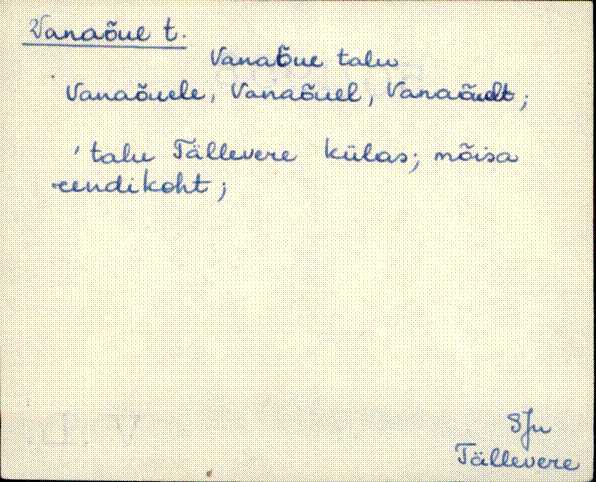 Vanaõue t.
Vanaõue talu
Vanaõuele, Vanaõuel, Vanaõuelt;
'talu Tällevere külas; mõisa
rendikoht;
SJn
Tällevere